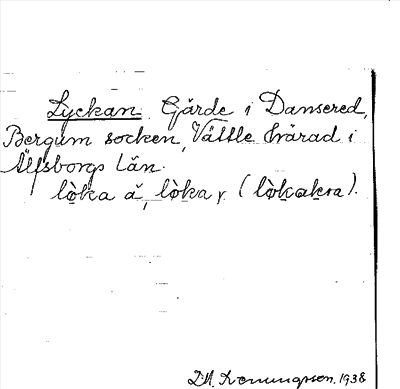 Lyckan. Gärde i Dansered,
Bergum socken, Vättle härad i
Älfsborgs Län.
lòka ǎ, lòka, r (lòkakra).
1938